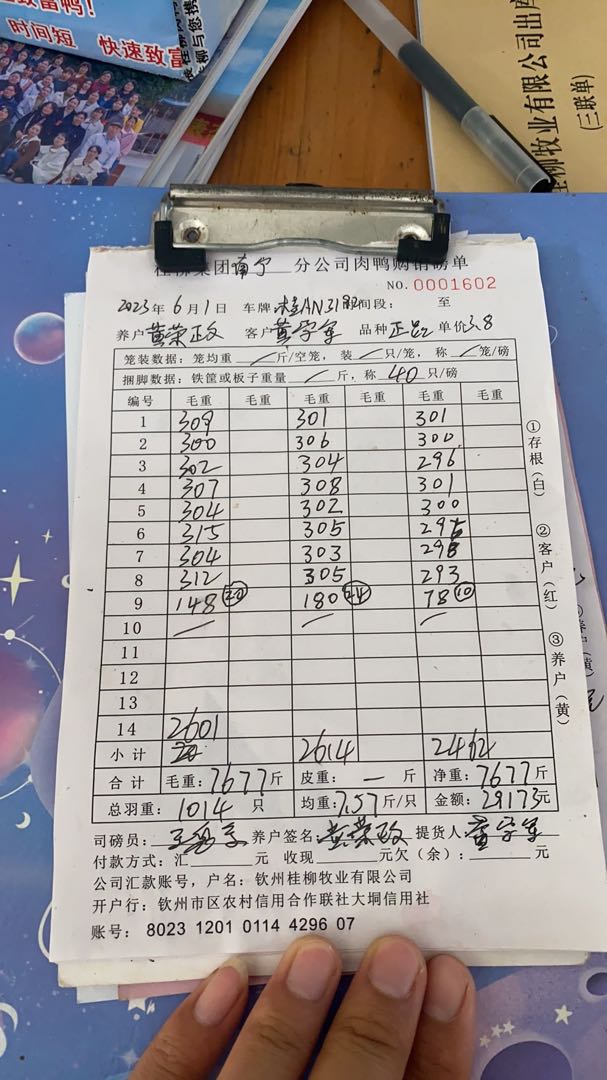 致富鸭！
时间短 快速致富
柳与您携
桂柳牧业有限公司出库
(三联单)
桂柳集团南宁分公司肉鸭购销磅单
NO.0001602
2023年6月1日 车牌桂AN31 时间段： 至
养户黄荣政 客户黄字军 品种正品 单价3.8
笼装数据：笼均重 / 斤/空笼，装 / 只/笼，称 / 笼/磅
捆脚数据：铁筐或板子重量 / 斤，称 40 只/磅
编号 毛重 毛重 毛重 毛重 毛重 毛重
1 309 301 301
2 300 306 300
3 302 304 296
4 307 308 301
5 304 302 300
6 315 305 295
7 304 303 298
8 312 305 293
9 148 20 180 24 78 10
10 / / /
11
12
13
14 2601
小计 2614 2462
合计 毛重：7677斤 皮重： — 斤 净重：7677斤
总羽重：1014 只 均重：7.57斤/只 金额：29173元
司磅员： 养户签名：黄荣政 提货人：黄字军
付款方式：汇 元 收现 元欠（余）： 元
公司汇款账号，户名：钦州桂柳牧业有限公司
开户行：钦州市区农村信用合作联社大垌信用社
账号：8023 1201 0114 4296 07
①存根（白）
②客户（红）
③养户（黄）